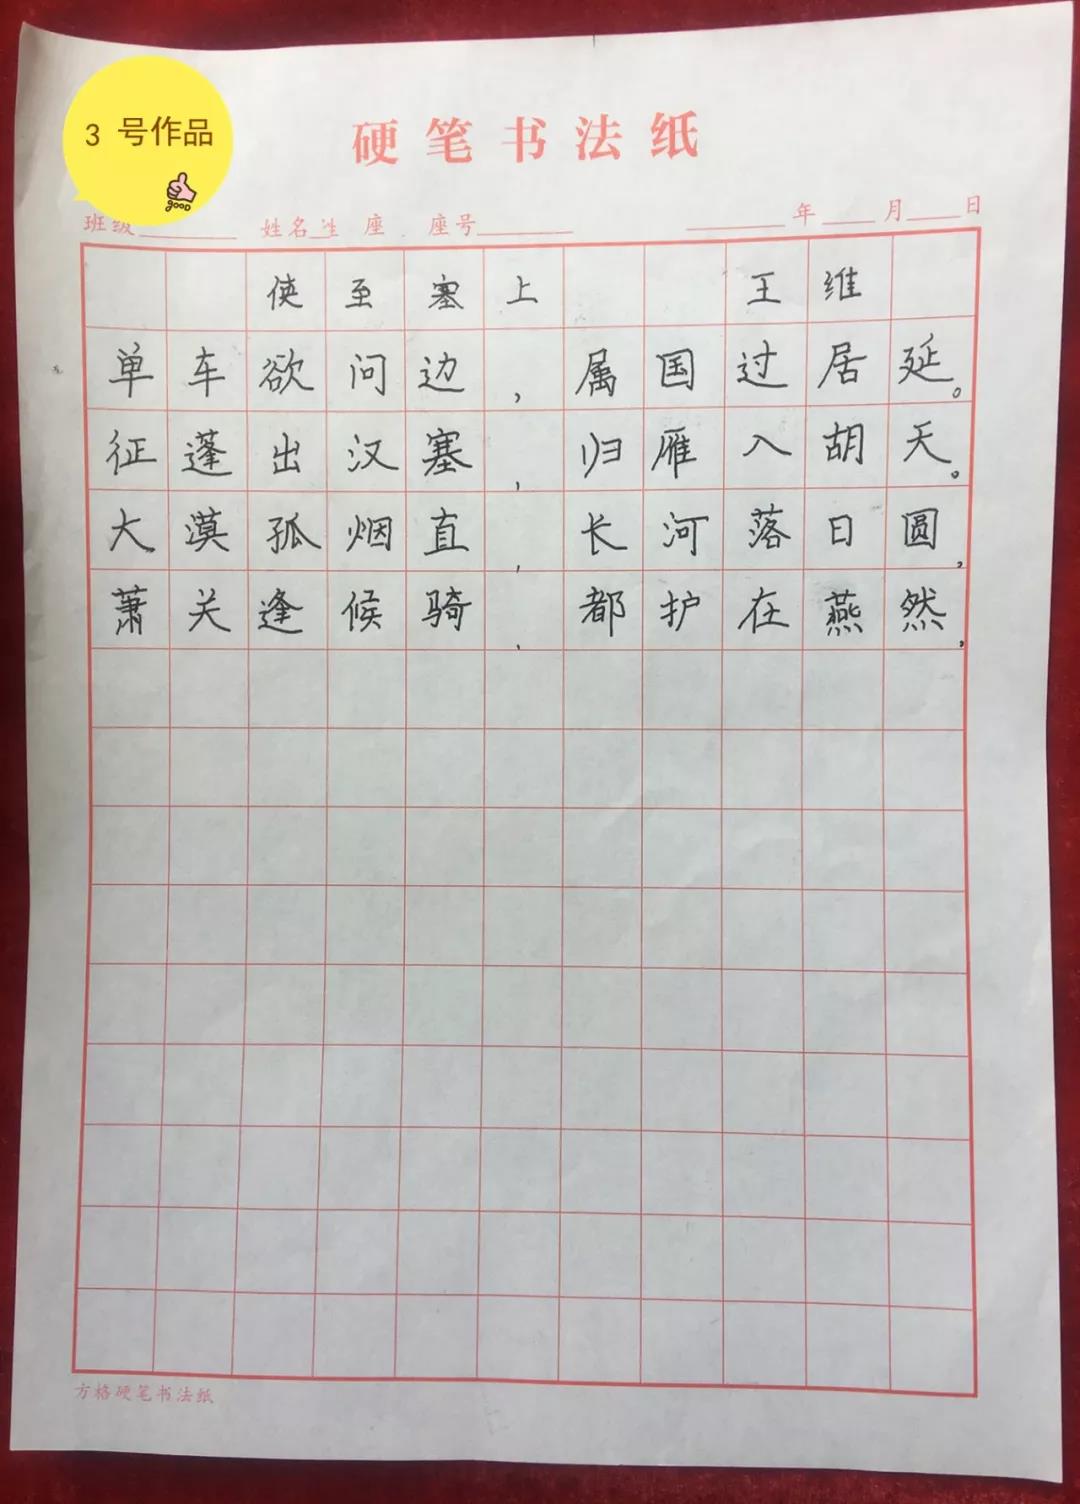 3 号作品
good
硬笔书法纸
班级 姓名 座 座号 年 月 日
使至塞上 王维
单车欲问边,属国过居延。
征蓬出汉塞,归雁入胡天。
大漠孤烟直,长河落日圆,
萧关逢候骑,都护在燕然,
方格硬笔书法纸